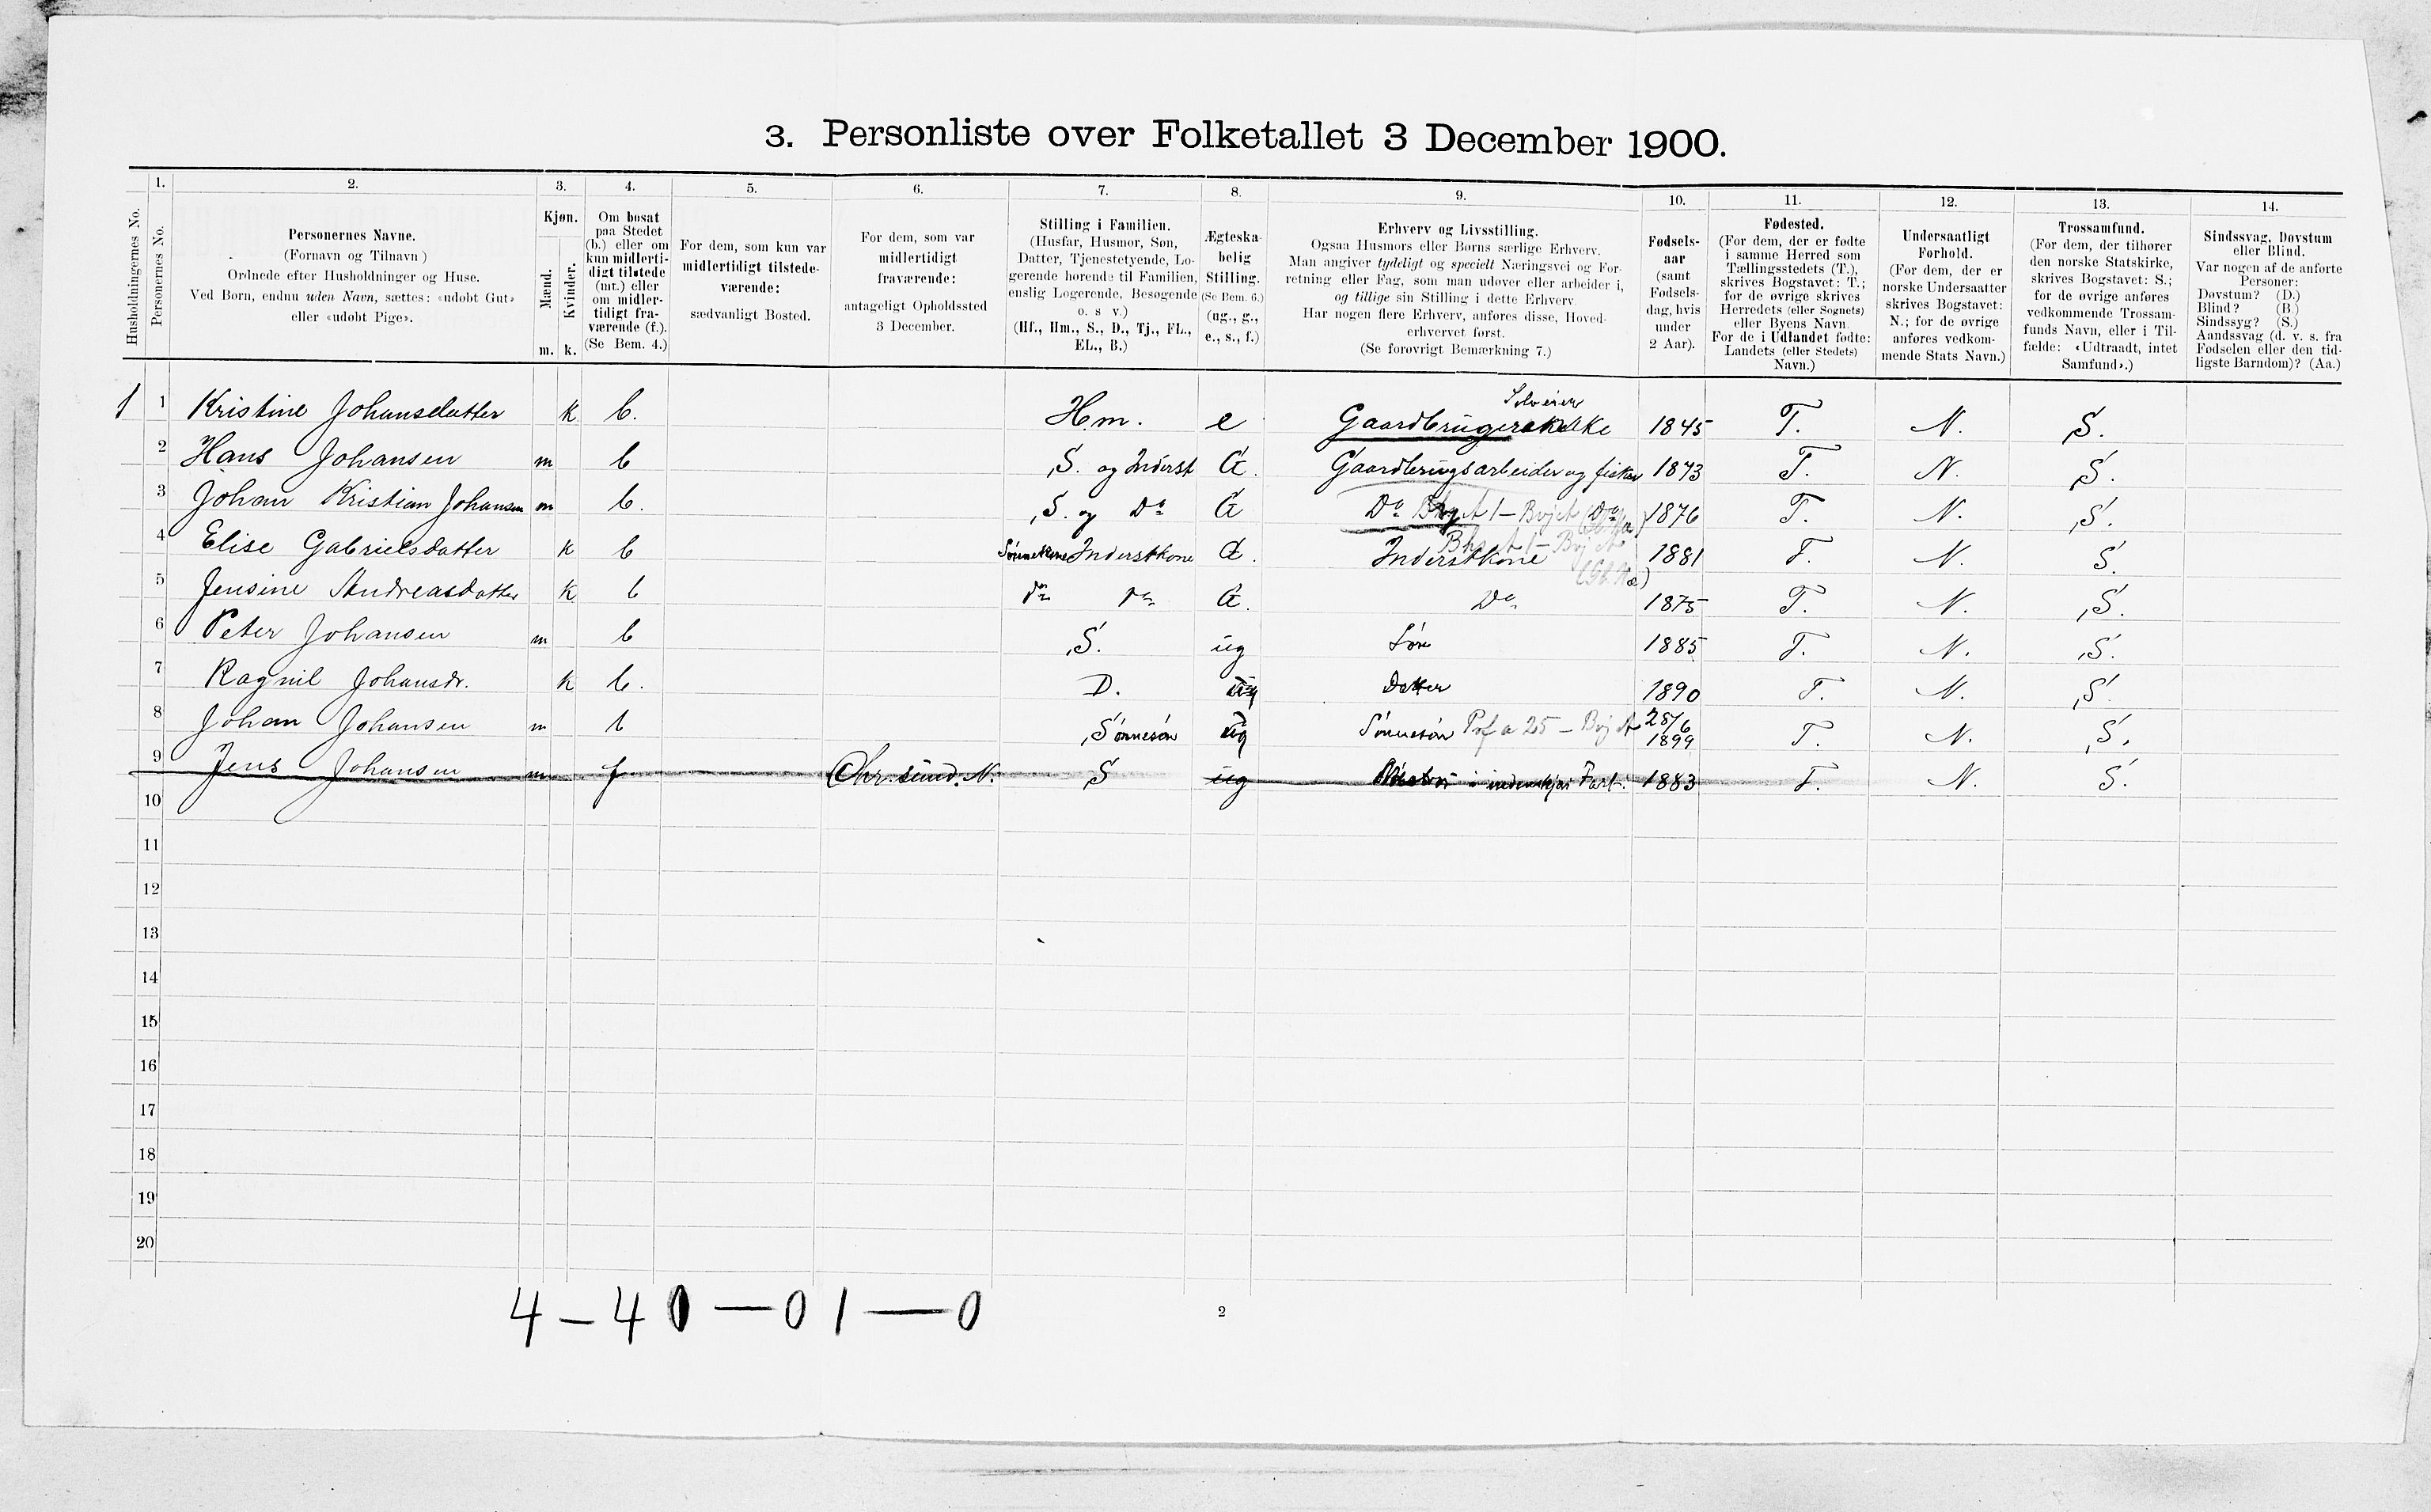 3. Personliste over Folketallet 3 December 1900.
1. 2. 3. 4. 5. 6. 7. 8. 9. 10. 11. 12. 13. 14.
Husholdningernes No.
Personernes No.
Personernes Navne.
(Fornavn og Tilnavn)
Ordnede efter Husholdninger og Huse.
Ved Børn, endnu uden Navn, sættes: «udøbt Gut»
eller «udøbt Pige».
Kjøn.
Mænd.
Kvinder.
m. k.
Om bosat
paa Stedet
(b.) eller om
kun midlerti-
digt tilstede
(mt.) eller
om midler-
tidigt fra-
værende (f.).
(Se Bem. 4.)
For dem, som kun var
midlertidigt tilstede-
værende:
sædvanligt Bosted.
For dem, som var
midlertidigt
fraværende:
antageligt Opholdssted
3 December.
Stilling i Familien.
(Husfar, Husmor, Søn,
Datter, Tjenestetyende, Lo-
gerende hørende til Familien,
enslig Logerende, Besøgende
o. s v.)
(Hf., Hm., S., D., Tj., FL.,
EL., B.)
Ægteska-
belig
Stilling.
(Se Bem. 6.)
(ug., g.,
e., s., f.)
Erhverv og Livsstilling.
Ogsaa Husmors eller Børns særlige Erhverv.
Man angiver tydeligt og specielt Næringsvei og For-
retning eller Fag, som man udøver eller arbeider i,
og tillige sin Stilling i dette Erhverv
Har nogen flere Erhverv, anføres disse, Hoved-
erhvervet først.
(Se forøvrigt Bemærkning 7.)
Fødsels-
aar
(samt
Fødsels-
dag, hvis
under
2 Aar).
Fødested.
(For dem, der er fødte
i samme Herred som
Tællingsstedets (T.),
skrives Bogstavet: T.;
for de øvrige skrives
Herredets (eller Sognets)
eller Byens Navn.
For de i Udlandet fødte:
Landets (eller Stedets)
Navn.)
Undersaatligt
Forhold.
(For dem, der er
norske Undersaatter
skrives Bogstavet:
N.; for de øvrige
anføres vedkom-
mende Stats Navn.)
Trossamfund.
(For dem, der tilhører
den norske Statskirke,
skrives Bogstavet: S.;
for de øvrige anføres
vedkommende Trossam-
funds Navn, eller i Til-
fælde: «Udtraadt, intet
Samfund».)
Sindssvag, Døvstum
eller Blind.
Var nogen af de anførte
Personer:
Døvstum? (D.)
Blind? (B.)
Sindssyg? (S.)
Aandssvag (d. v. s. fra
Fødselen eller den tid-
ligste Barndom)? (Aa.)
Selveier
1 1 Kristine Johansdatter k b. Hm. e Gaardbruger 1845 T. N. S.
2 Hans Johansen m b S. og Inderst G. Gaardbrugsarbeider og fisker 1873 T. N. S.
3 Johan Kristian Johansen m b. S. og Do G Do 1876 T. N. S.
4 Elise Gabrielsdatter k b Sønnekone Inderstkone G. Inderstkone 1881 T. N. S.
5 Jensine Andreasdatter k b Do Do G. Do 1875 T. N. S.
6 Peter Johansen m b S. ug Søn 1885 T. N. S.
7 Ragnil Johansdr. k b. D. ug Datter 1890 T. N. S.
8 Johan Johansen m b Sønnesøn ug Sønnesøn 28/6 1899 T. N. S.
9 Jens Johansen m f Chr.sund. N. S ug i indenskjærs Fart. 1883 T. N. S.
10
11
12
13
14
15
16
17
18
19
20
4 – 4 0 — 0 1 — 0
2